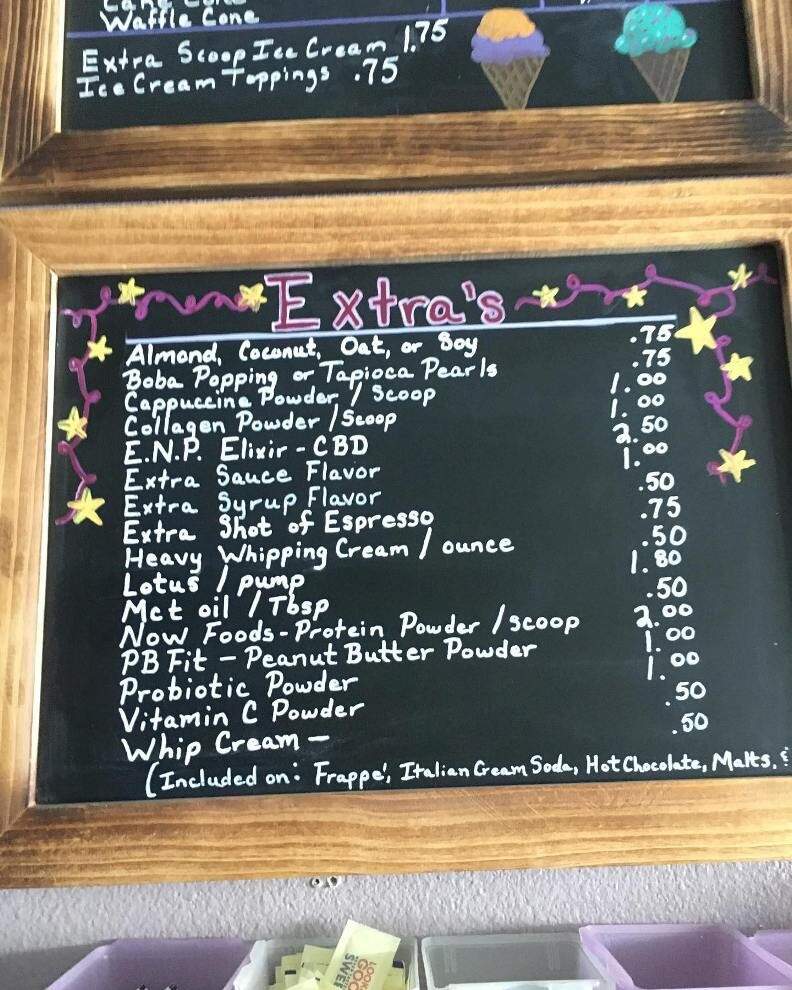 Cake Cone
Waffle Cone
Extra Scoop Ice Cream 1.75
Ice Cream Toppings .75
Extra's
Almond, Coconut, Oat, or Soy .75
Boba Popping or Tapioca Pearls .75
Cappuccino Powder / Scoop 1.00
Collagen Powder / Scoop 1.00
E.N.P. Elixir - CBD 2.50
Extra Sauce Flavor 1.00
Extra Syrup Flavor .50
Extra Shot of Espresso .75
Heavy Whipping Cream / ounce .50
Lotus / pump 1.80
Mct oil / Tbsp .50
Now Foods - Protein Powder / scoop 2.00
PB Fit - Peanut Butter Powder 1.00
Probiotic Powder 1.00
Vitamin C Powder .50
Whip Cream - .50
(Included on: Frappe', Italian Cream Soda, Hot Chocolate, Malts, &